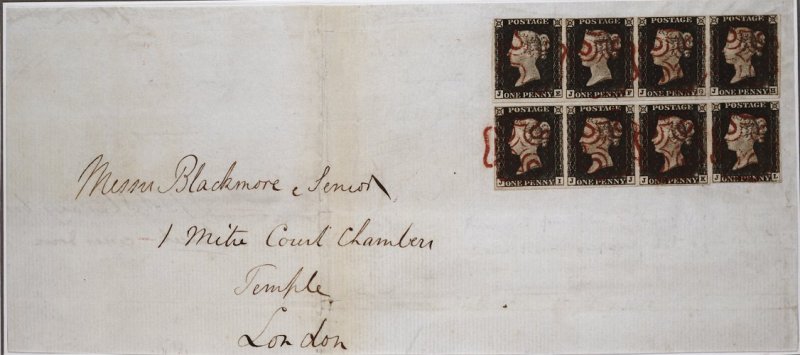 POSTAGE POSTAGE POSTAGE POSTAGE
J ONE PENNY E J ONE PENNY F J ONE PENNY G J ONE PENNY H
POSTAGE POSTAGE POSTAGE POSTAGE
J ONE PENNY I J ONE PENNY J J ONE PENNY K J ONE PENNY L
Messrs Blackmore & Senior
1 Mitre Court Chambers
Temple
London